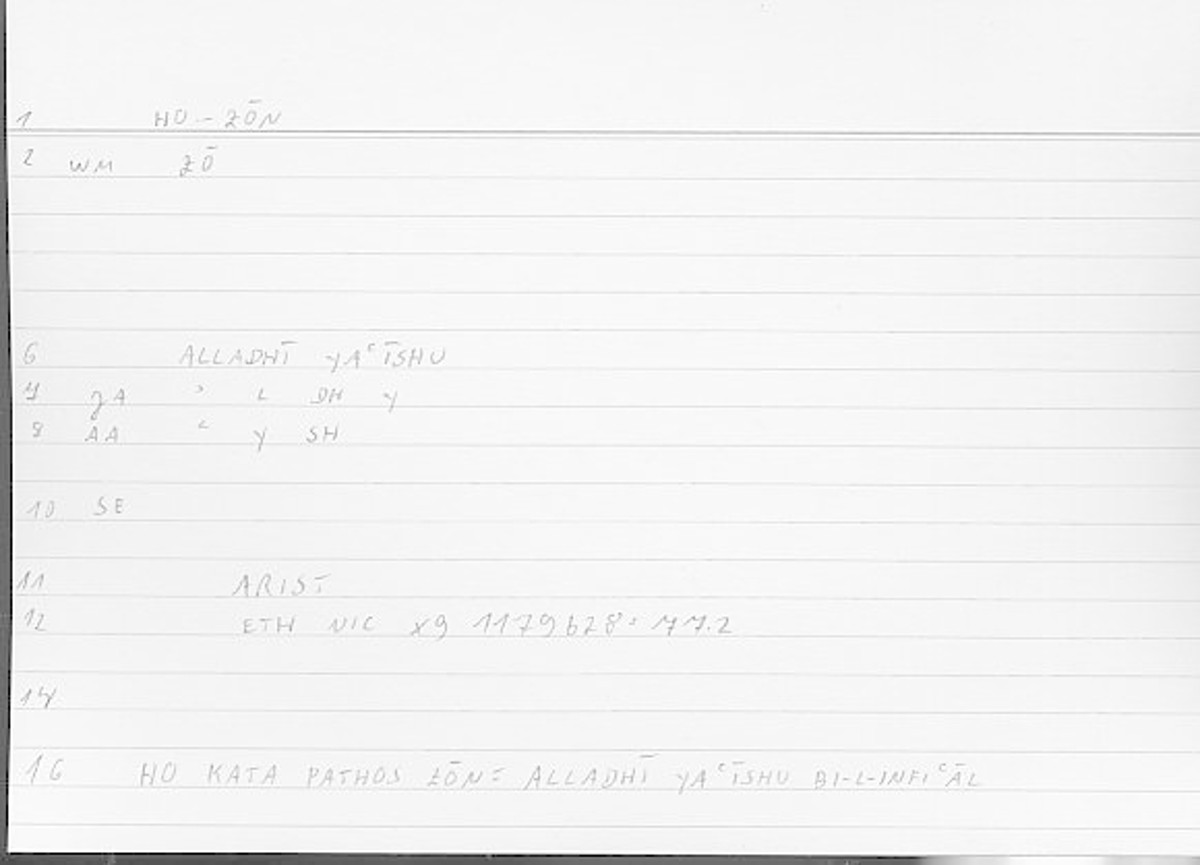 1 HO-ZŌN
2 WM ZŌ
6 ALLADHĪ YAʿĪSHU
7 ZA ʾ L DH Y
8 AA ʿ Y SH
10 SE
11 ARIST
12 ETH NIC X9 1179b28: 77.2
14
16 HO KATA PATHOS ZŌN = ALLADHĪ YAʿĪSHU BI-L-INFIʿĀL